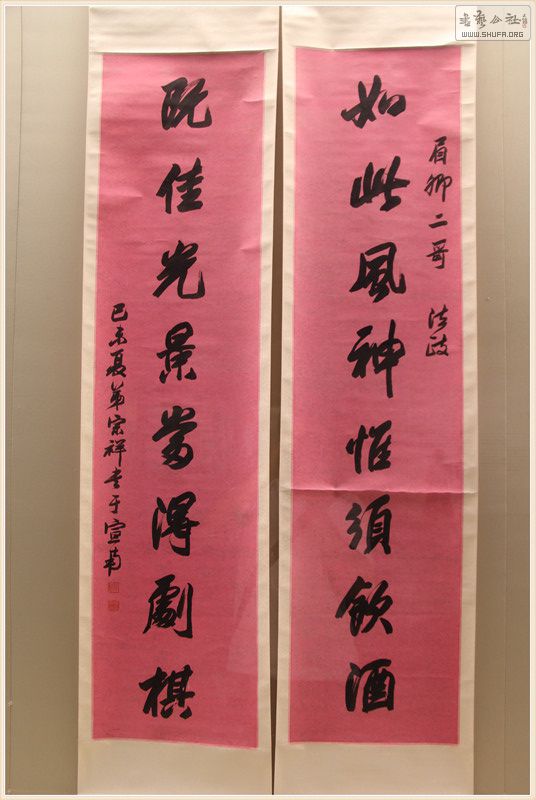 書藝公社
WWW.SHUFA.ORG
眉卿二哥 法政
如此風神惟須飲酒
既佳光景當得劇棋
己未夏弟宗祥書于宣南